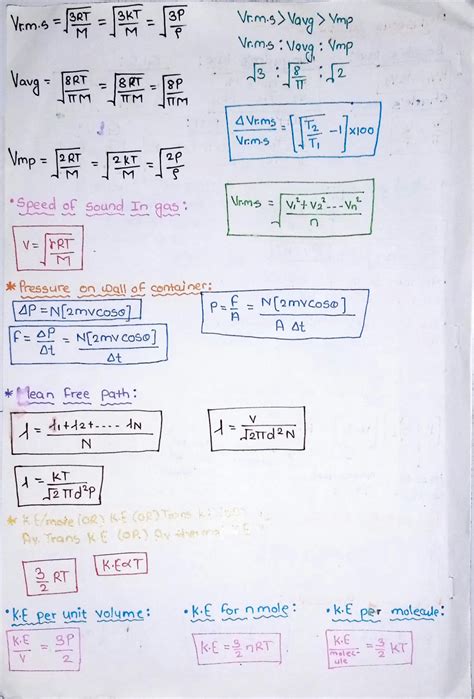 Vr.m.s = √3RT/M = √3KT/M = √3P/ρ
Vr.m.s > Vavg > Vmp
Vr.m.s : Vavg : Vmp
√3 : √8/π : √2
Vavg = √8RT/πM = √8RT/πM = √8P/πM
ΔVr.ms/Vr.m.s = [√T₂/T₁ - 1] x100
Vmp = √2RT/M = √2KT/M = √2P/ρ
• Speed of sound In gas:
Vr.ms = √v₁²+v₂²...vn²/n
V = √rRT/M
* Pressure on wall of container:
ΔP = N[2mvcosθ]
P = F/A = N[2mvcosθ]/A Δt
F = ΔP/Δt = N[2mvcosθ]/Δt
* Mean free path:
λ = λ₁+λ₂+....λN/N
λ = V/√2πd²N
λ = KT/√2πd²P
* K.E/mole (OR) K.E (OR) Trans K.E
Av. Trans K.E (OR) Av thermal K.E
3/2 RT
K.E∝T
• K.E per unit volume:
• K.E for n mole:
• K.E per molecule:
K.E/V = 3P/2
K.E = 3/2 nRT
K.E/molecule = 3/2 KT